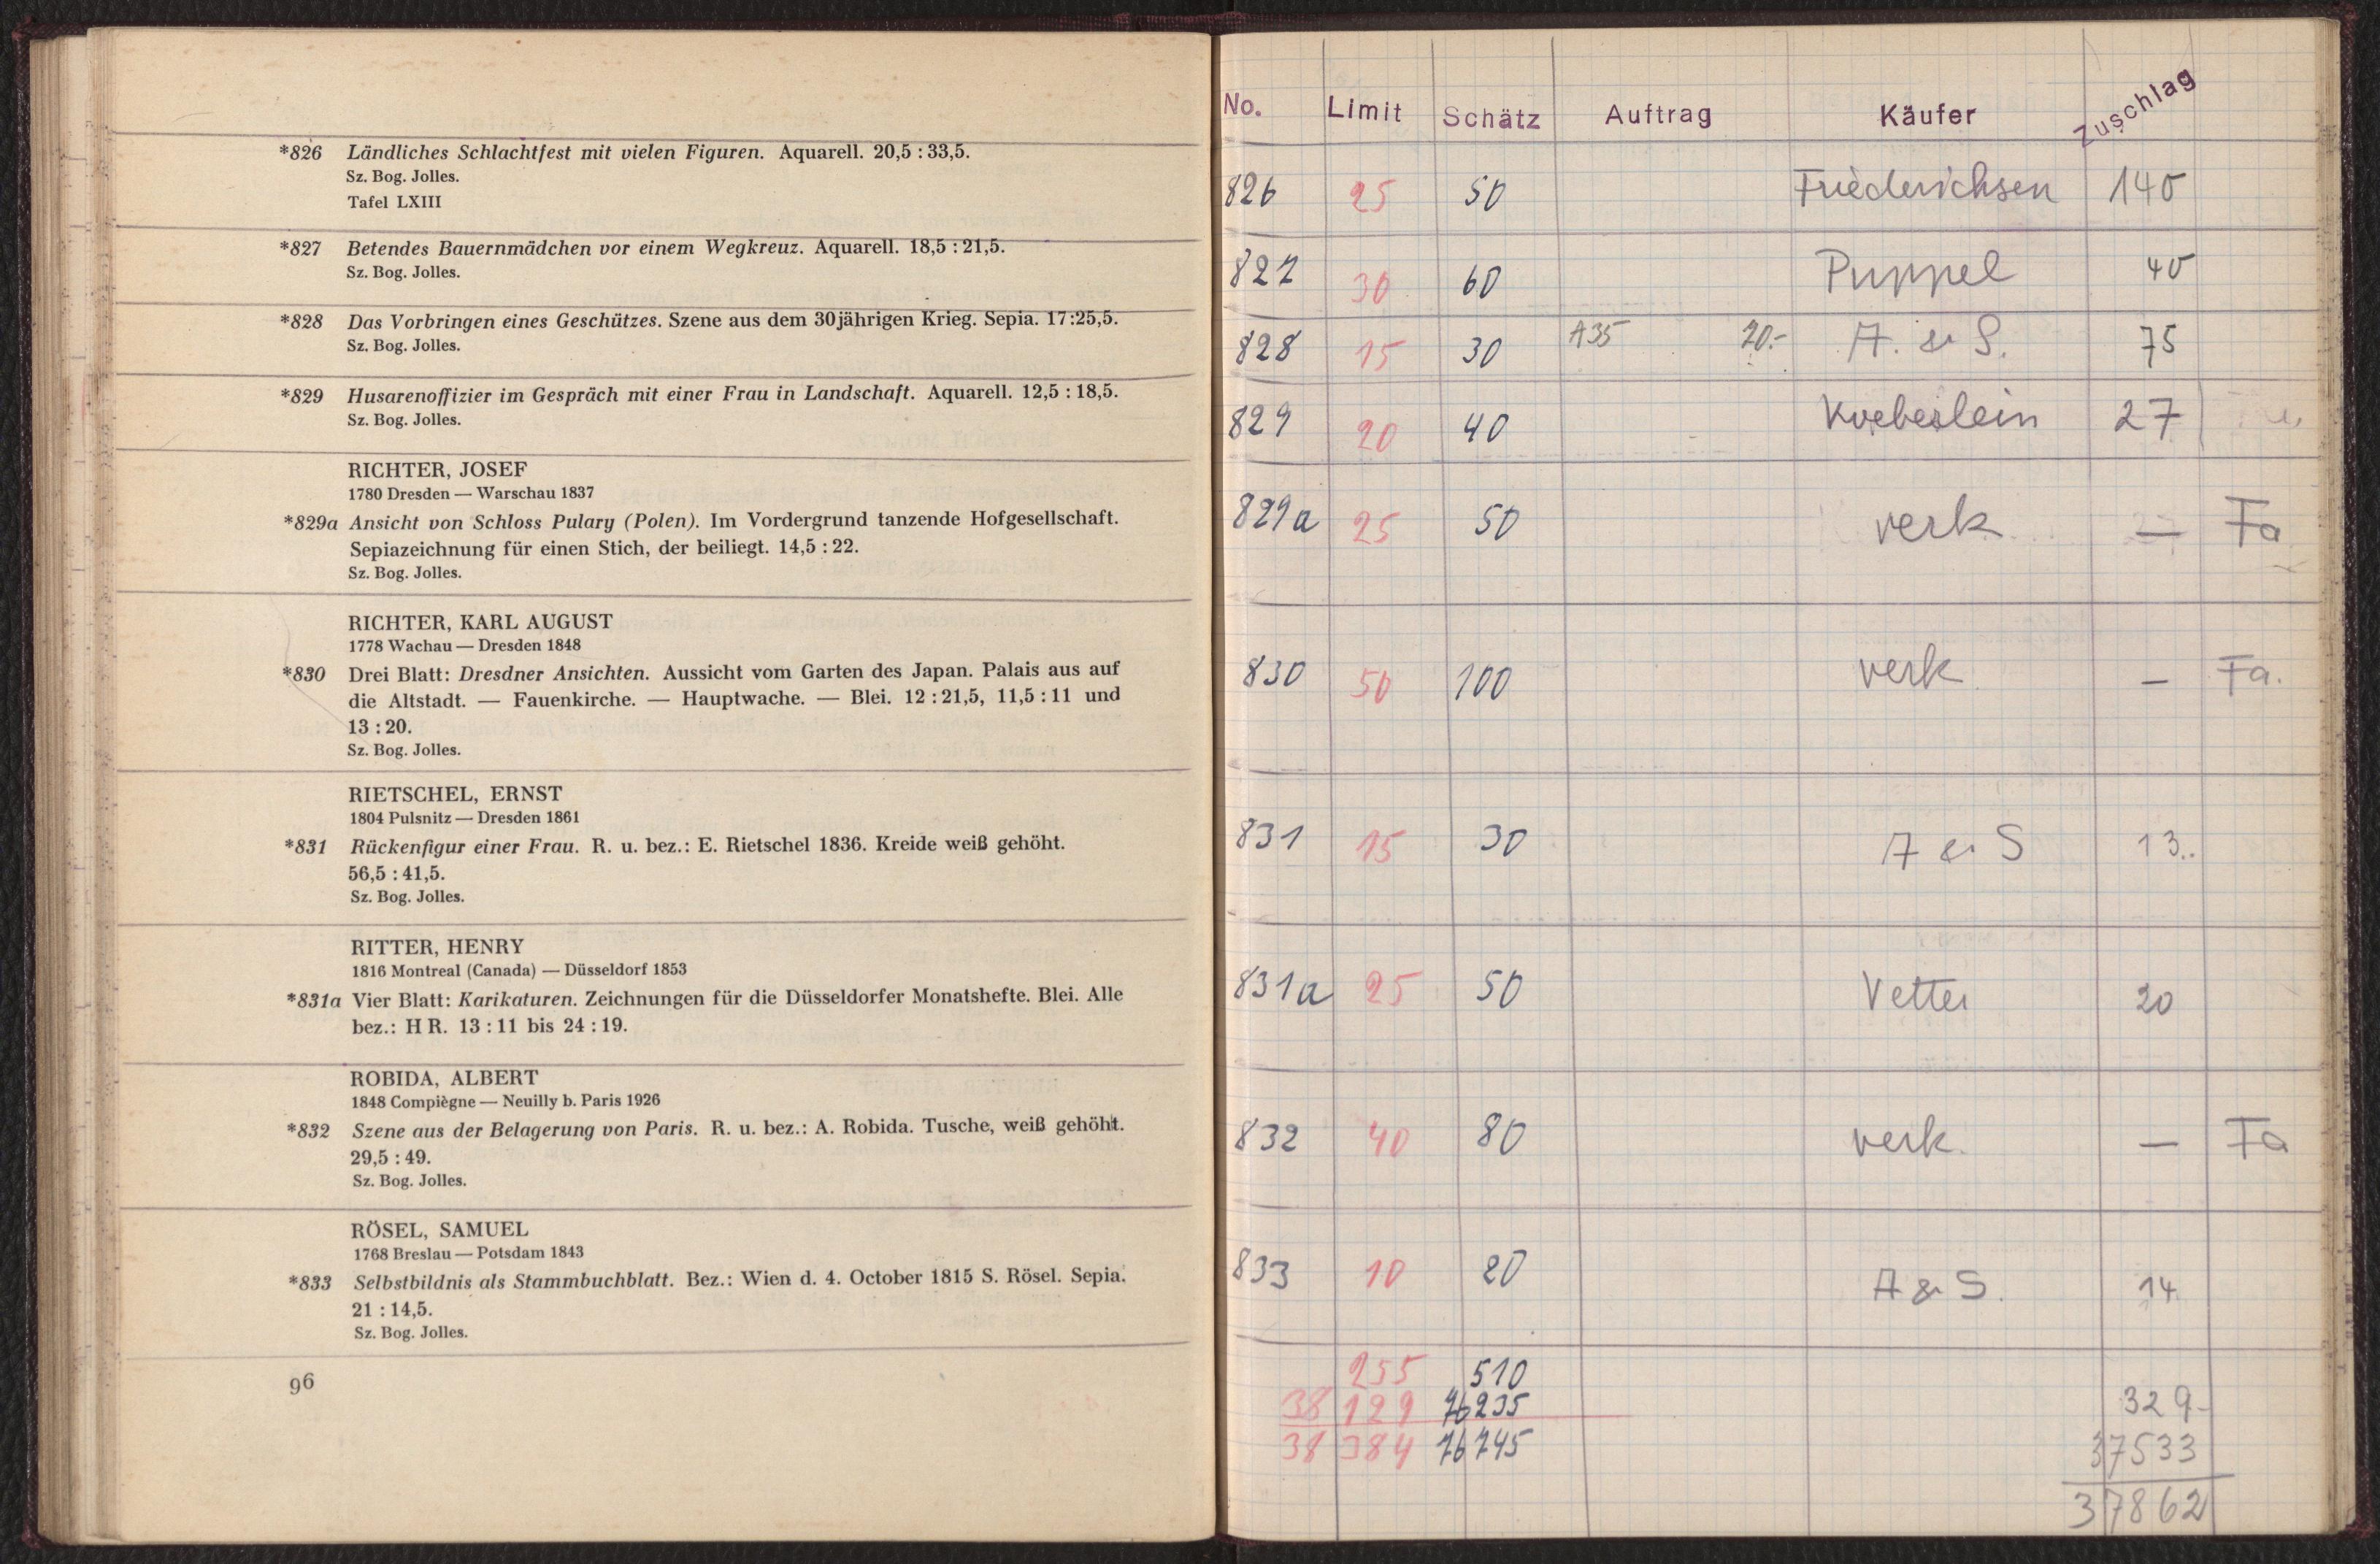 *826 Ländliches Schlachtfest mit vielen Figuren. Aquarell. 20,5 : 33,5.
Sz. Bog. Jolles.
Tafel LXIII
*827 Betendes Bauernmädchen vor einem Wegkreuz. Aquarell. 18,5 : 21,5.
Sz. Bog. Jolles.
*828 Das Vorbringen eines Geschützes. Szene aus dem 30jährigen Krieg. Sepia. 17:25,5.
Sz. Bog. Jolles.
*829 Husarenoffizier im Gespräch mit einer Frau in Landschaft. Aquarell. 12,5 : 18,5.
Sz. Bog. Jolles.
RICHTER, JOSEF
1780 Dresden — Warschau 1837
*829a Ansicht von Schloss Pulary (Polen). Im Vordergrund tanzende Hofgesellschaft.
Sepiazeichnung für einen Stich, der beiliegt. 14,5 : 22.
Sz. Bog. Jolles.
RICHTER, KARL AUGUST
1778 Wachau — Dresden 1848
*830 Drei Blatt: Dresdner Ansichten. Aussicht vom Garten des Japan. Palais aus auf
die Altstadt. — Fauenkirche. — Hauptwache. — Blei. 12 : 21,5, 11,5 : 11 und
13 : 20.
Sz. Bog. Jolles.
RIETSCHEL, ERNST
1804 Pulsnitz — Dresden 1861
*831 Rückenfigur einer Frau. R. u. bez.: E. Rietschel 1836. Kreide weiß gehöht.
56,5 : 41,5.
Sz. Bog. Jolles.
RITTER, HENRY
1816 Montreal (Canada) — Düsseldorf 1853
*831a Vier Blatt: Karikaturen. Zeichnungen für die Düsseldorfer Monatshefte. Blei. Alle
bez.: H R. 13 : 11 bis 24 : 19.
ROBIDA, ALBERT
1848 Compiègne — Neuilly b. Paris 1926
*832 Szene aus der Belagerung von Paris. R. u. bez.: A. Robida. Tusche, weiß gehöht.
29,5 : 49.
Sz. Bog. Jolles.
RÖSEL, SAMUEL
1768 Breslau — Potsdam 1843
*833 Selbstbildnis als Stammbuchblatt. Bez.: Wien d. 4. October 1815 S. Rösel. Sepia.
21 : 14,5.
Sz. Bog. Jolles.
96
No. Limit Schätz Auftrag Käufer Zuschlag
826 25 50 Friederichsen 140
827 30 60 Puppel 40
828 15 30 A35 20.- A. & S. 75
829 20 40 Koeberlein 27
829a 25 50 verk — Fa
830 50 100 verk. — Fa.
831 15 30 A & S 13..
831a 25 50 Vetter 20
832 40 80 verk. — Fa
833 10 20 A & S. 14
255 510
38 129 76235 329-
38 384 76745 37533
37862